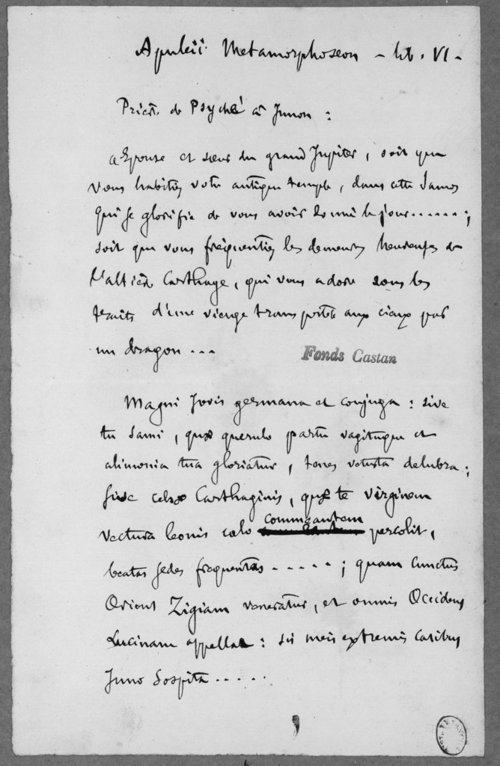 Apuleii Metamorphoseon - lib. VI -
Prière de Psyché à Junon :
"Epouse et sœur du grand Jupiter, soit que
vous habitiez votre antique temple, dans cette Samos
qui se glorifie de vous avoir donné le jour ...... ;
soit que vous fréquentiez les demeures heureuses de
l'altière Carthage, qui vous adore sous les
traits d'une vierge transportée aux cieux par
un dragon ...
Fonds Castan
Magni Jovis germana et conjuga : sive
tu Sami, quæ querulo partu vagituque et
alimonia tua gloriatur, tenes vetusta delubra ;
sive celsæ Carthaginis, quæ te virginem
vectura leonis cœlo commeantem percolit,
beatas sedes frequentas ..... ; quam cunctus
Orient Zigiam veneratur, et omnis Occidens
Lucinam appellat : sis meis extremis casibus
Juno Sospita .....